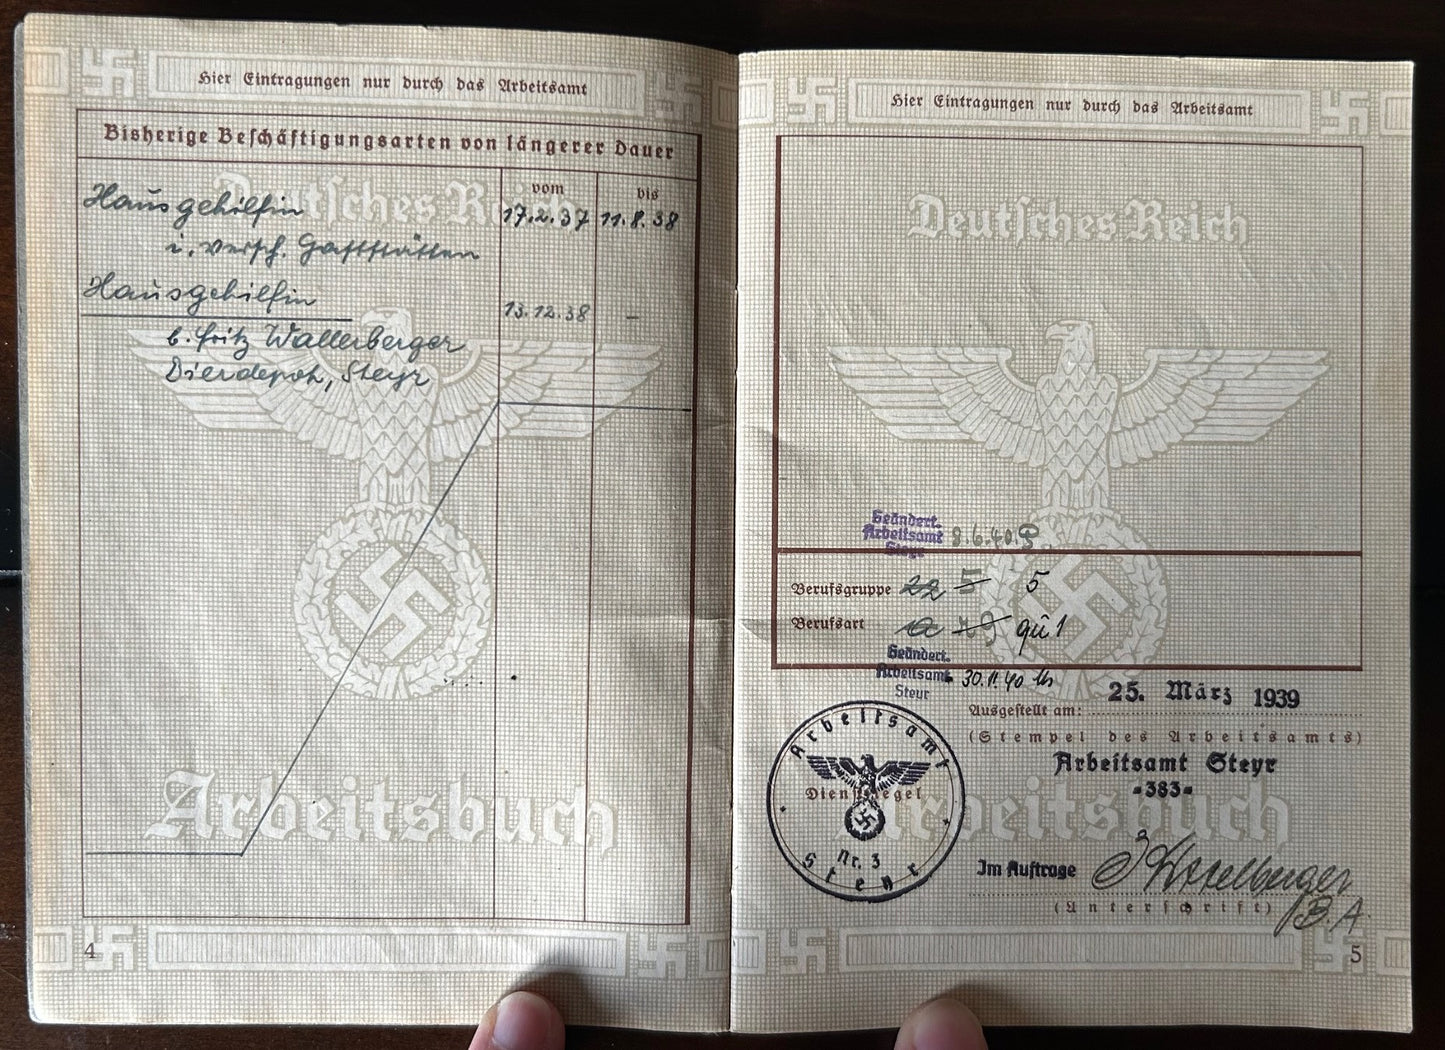 Hier Eintragungen nur durch das Arbeitsamt
Bisherige Beschäftigungsarten von längerer Dauer
vom
bis
Hausgehilfin
17.2.37
11.8.38
i. versch. Gaststätten
Hausgehilfin
13.12.38
–
b. Fritz Wallerberger
Bierdepot, Steyr
Deutsches Reich
Arbeitsbuch
4
Hier Eintragungen nur durch das Arbeitsamt
Deutsches Reich
Geändert.
Arbeitsamt 8.6.40.
Steyr
Berufsgruppe 22 5 5
Berufsart a 29 gü1
Geändert.
Arbeitsamt 30.11.40
Steyr
Ausgestellt am: 25. März 1939
(Stempel des Arbeitsamts)
Arbeitsamt Steyr
-383-
Arbeitsamt
Dienstsiegel
Nr. 3
Steyr
Arbeitsbuch
Im Auftrage
(Unterschrift) B.A.
5